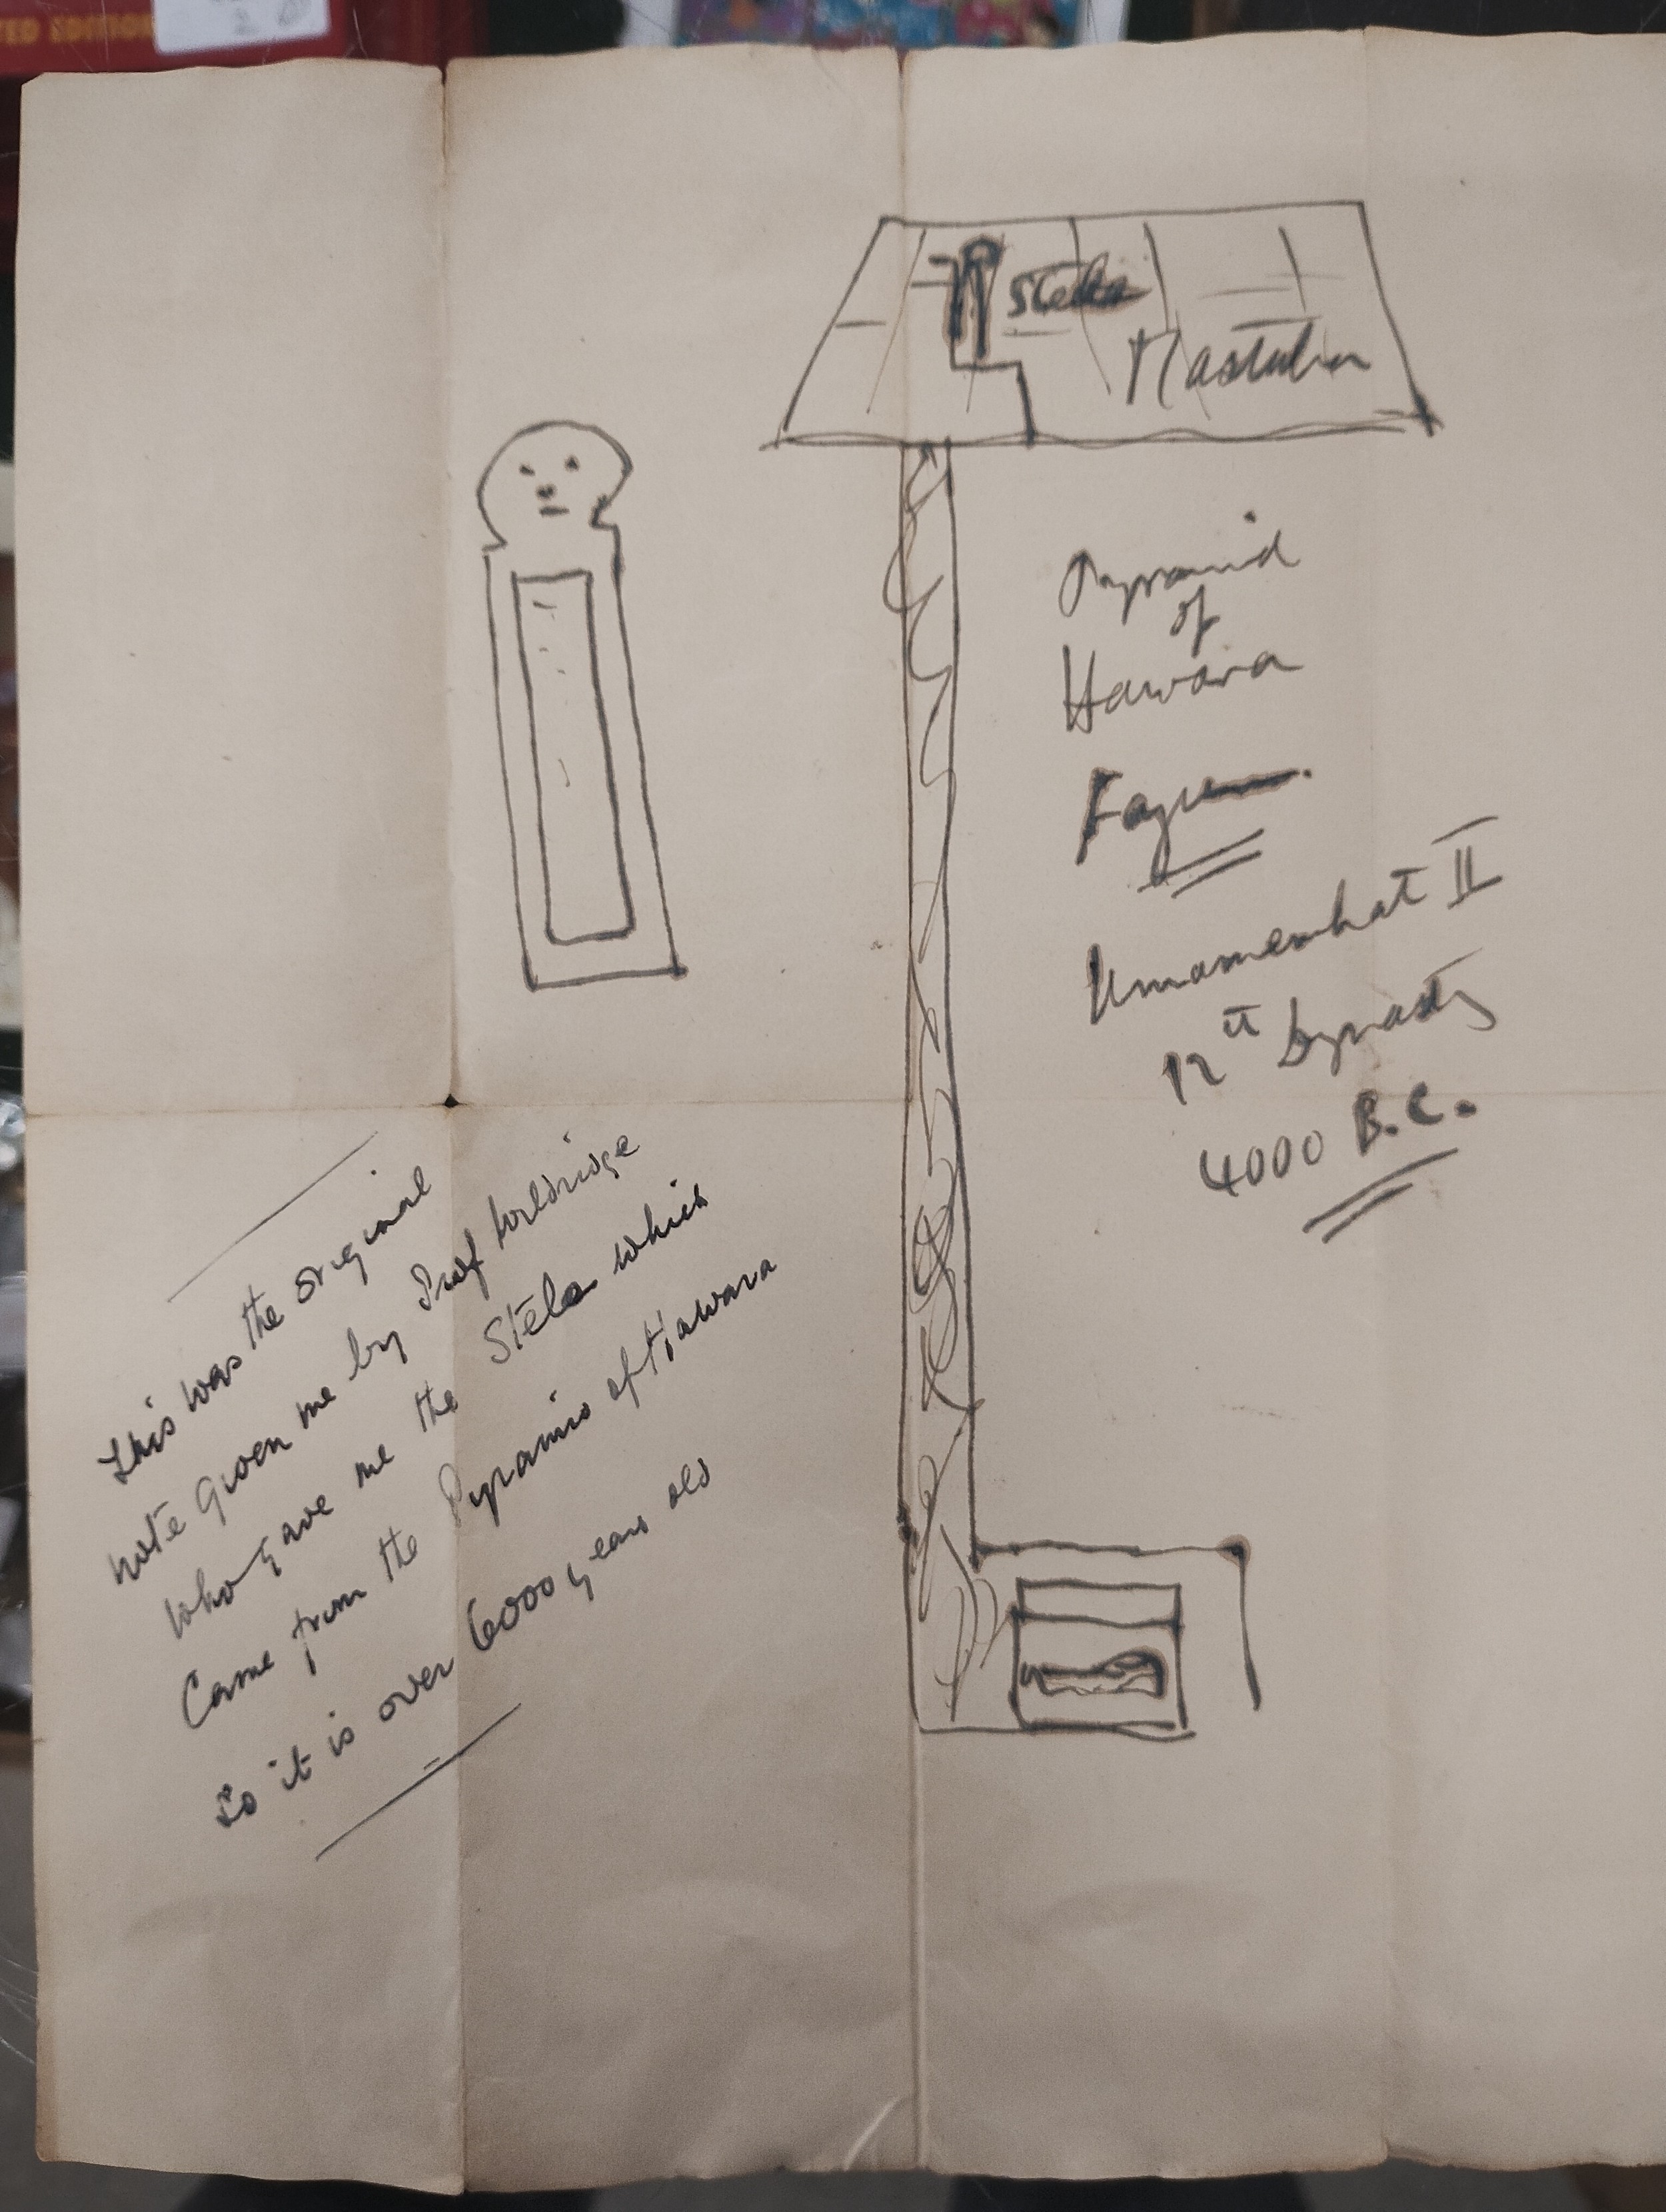 TED EDITION
2
Stela
Mastaba
Pyramid
of
Hawara
Fayum.
Amamemhat II
12th Dynasty
4000 B.C.
This was the original
note given me by Prof
who gave me the Stela which
Came from the Pyramid of Hawara
So it is over 6000 years old